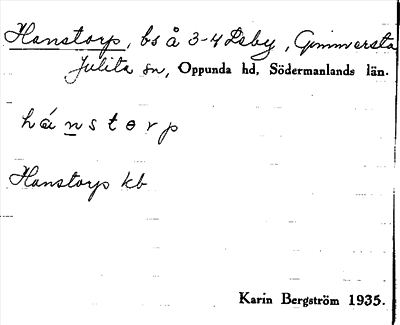 Hanstorp, bs å 3-4 Lsby, Gimmersta
Julita sn, Oppunda hd, Södermanlands län.
hánstorp
Hanstorp kb
Karin Bergström 1935.